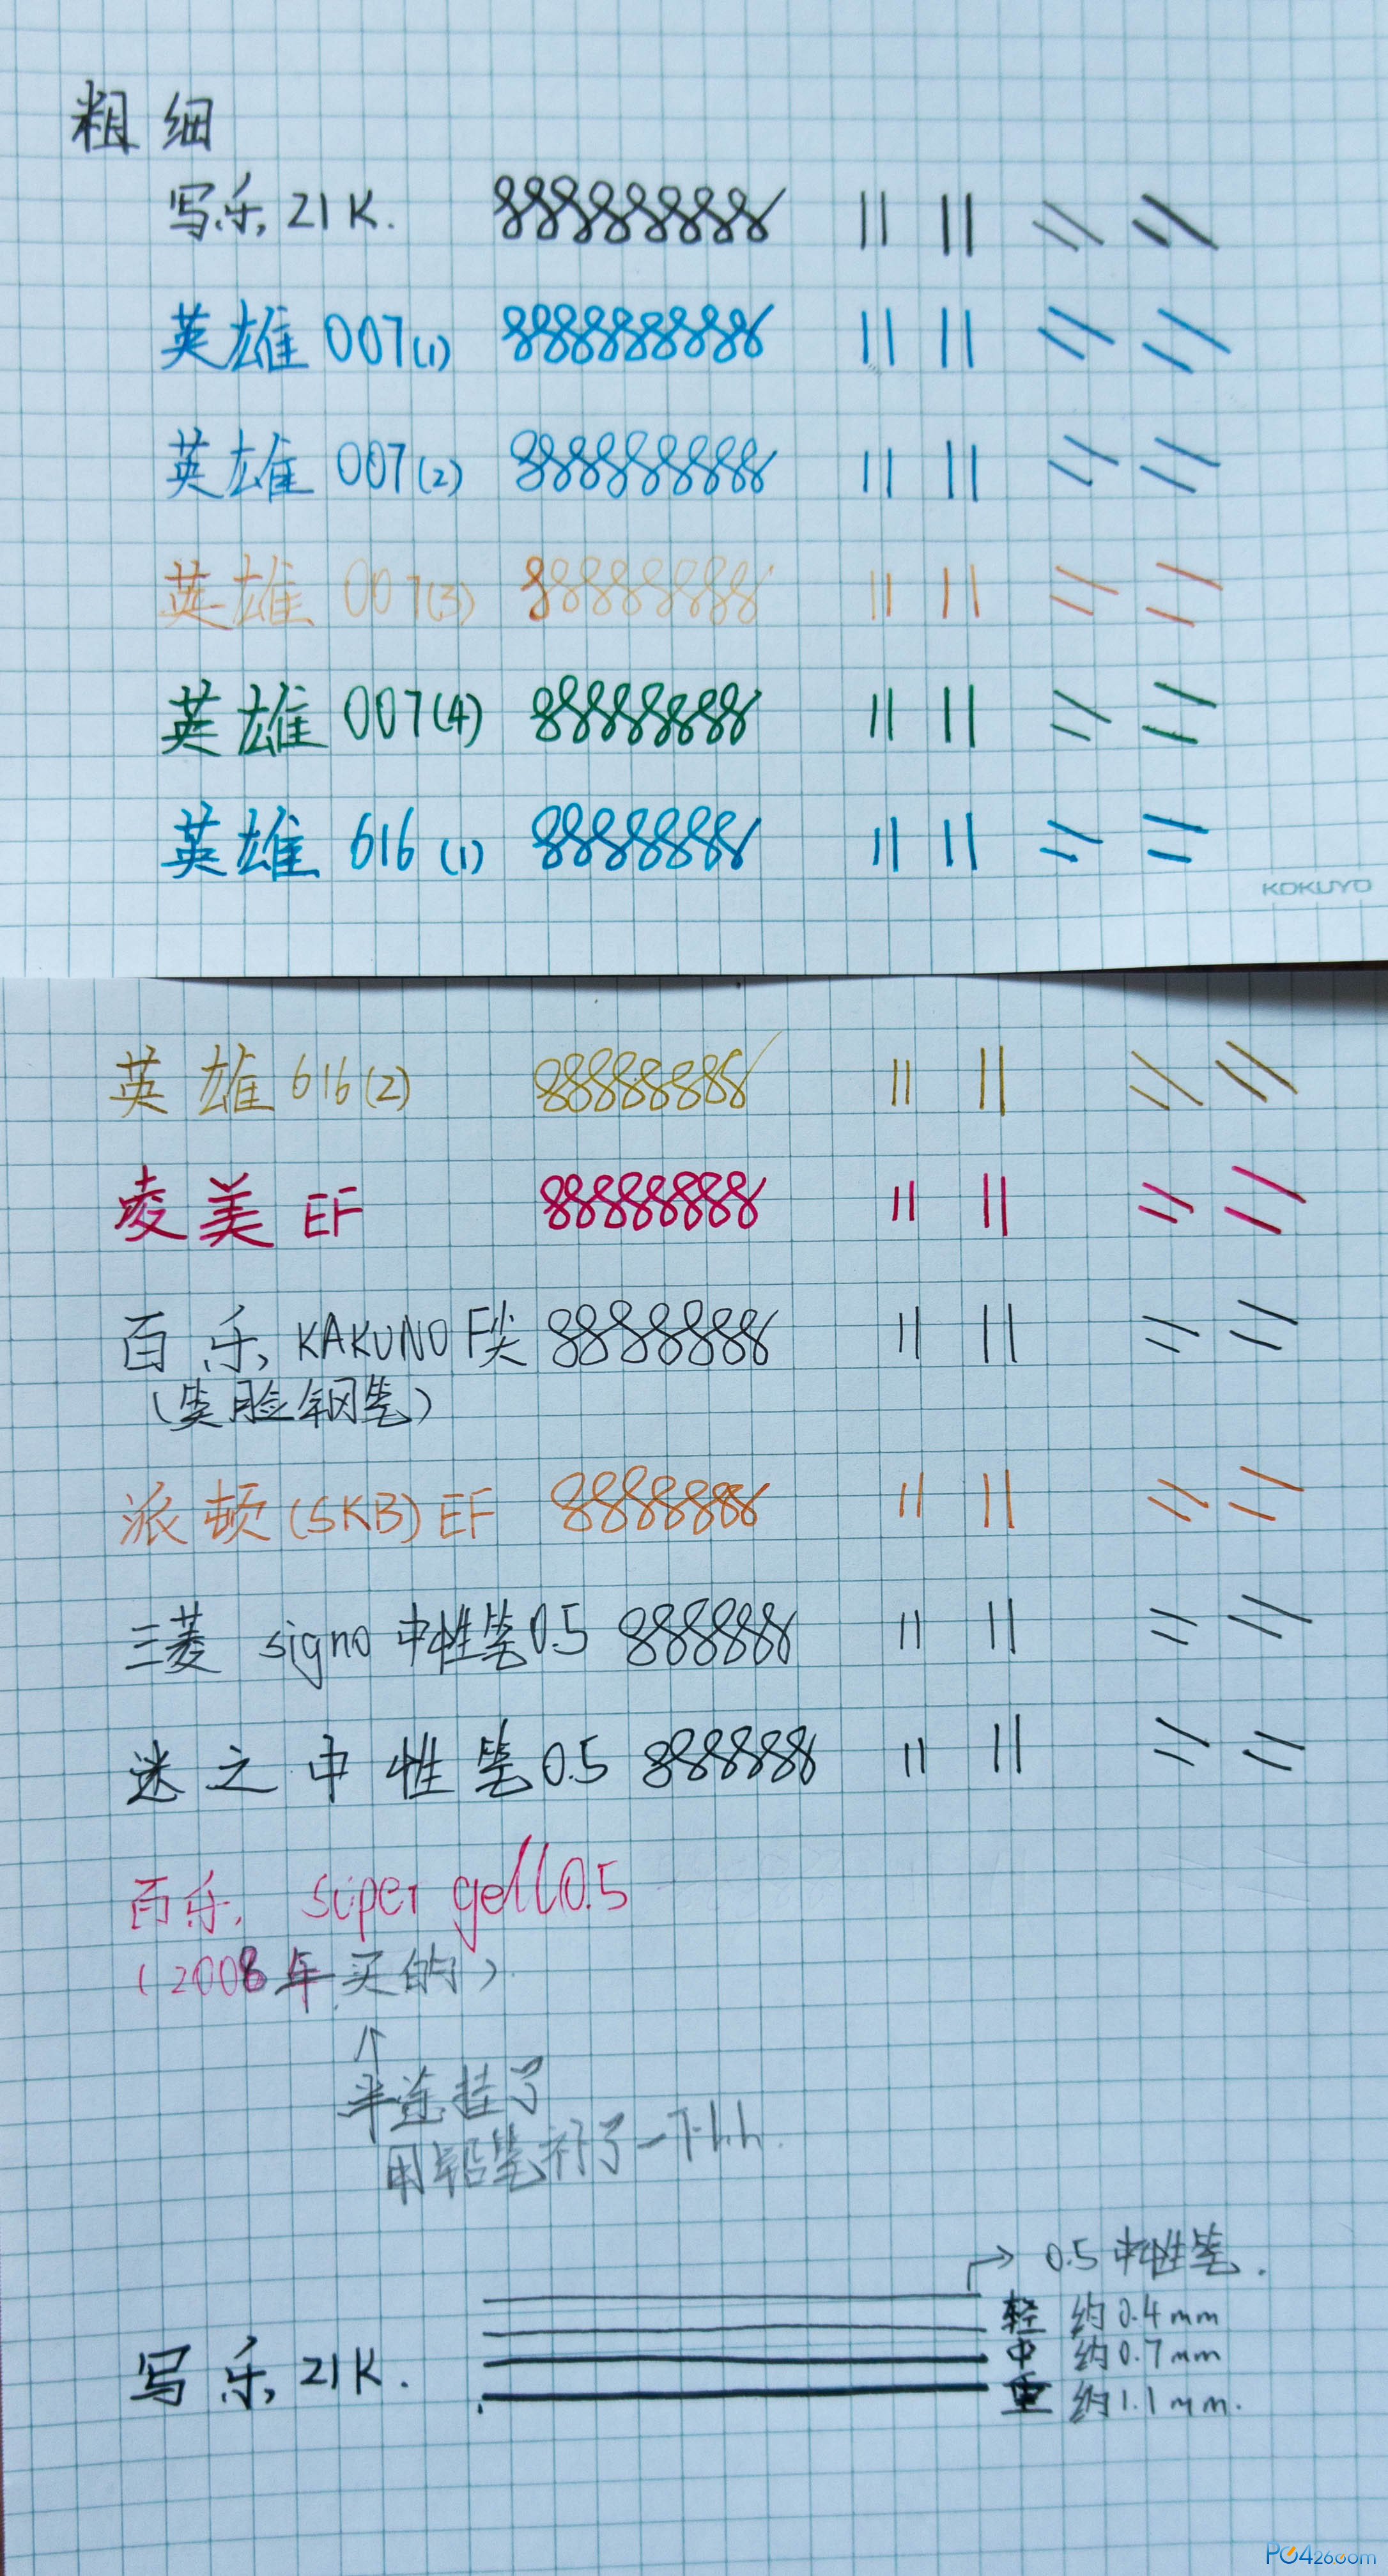 粗细
写乐21K. 88888888
英雄007(1) 888888888
英雄007(2) 888888888
英雄007(3) 88888888
英雄007(4) 88888888
英雄616(1) 8888888
KOKUYO
英雄616(2) 88888888
凌美EF 88888888
百乐KAKUNO F尖 8888888
(笑脸钢笔)
派顿(SKB)EF 8888888
三菱 signo 中性笔0.5 888888
迷之中性笔0.5 888888
百乐 super gell 0.5
(2008年买的)
半途挂了
用铅笔补了一下hh.
0.5中性笔.
轻 约0.4mm
中 约0.7mm
写乐21K.
重 约1.1mm.